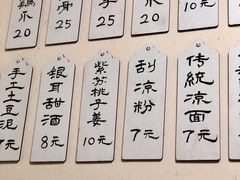 爪
20
25
爪
20
25
手工土豆泥
7元
银耳甜酒
8元
紫苏桃子姜
10元
刮凉粉
7元
传統凉面
7元